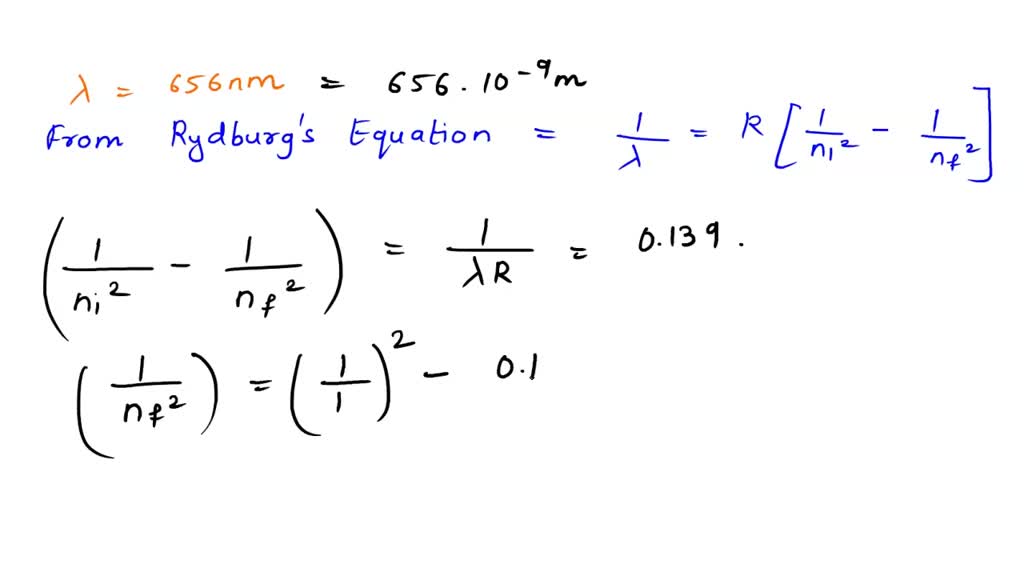 λ = 656nm = 656 . 10⁻⁹m
From Rydburg's Equation = 1/λ = R [1/nᵢ² - 1/n_f²]
(1/nᵢ² - 1/n_f²) = 1/λR = 0.139 .
(1/n_f²) = (1/1)² - 0.1